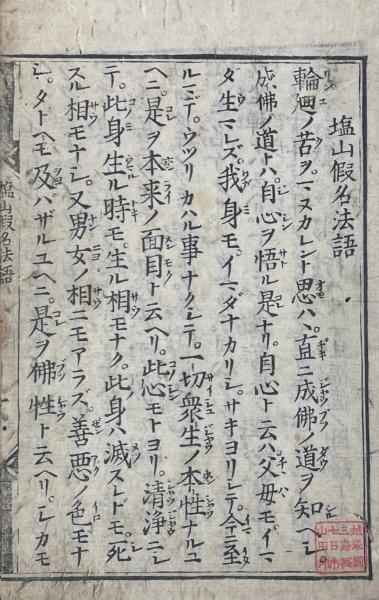 塩山假名法語
輪廻ノ苦ヲ。マヌカレント思ハヾ。直ニ成佛ノ道ヲ知ベシ
成佛ノ道トハ。自心ヲ悟ル是ナリ。自心ト云ハ。父母モイマ
ダ生マレズ。我身モ。イマダナカリシ。サキヨリシテ。今ニ至
ルマデ。ウツリカハル事ナクシテ。一切衆生ノ本性ナルユ
ヘニ。是ヲ本来ノ面目ト云ヘリ。此心モトヨリ。清浄ニシ
テ。此身生ル時モ。生ル相モナク。此身ハ滅スレドモ。死
スル相モナシ。又男女ノ相ニモアラズ。善悪ノ色モナ
シ。タトヘモ及バザルユヘニ。是ヲ佛性ト云ヘリ。シカモ
塩山假名法語